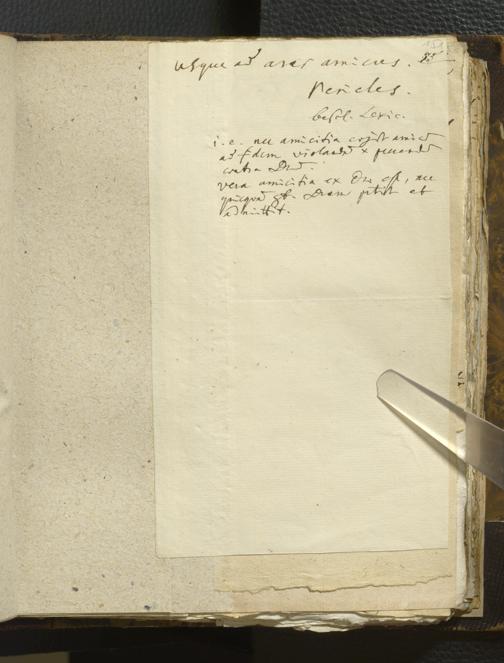 usque ad aras amicus. 85
Pericles.
Besol. Lexic.
i.e. nec amicitia cogit amicū
ad fidem violandā & peccandū
contra Deū.
vera amicitia ex Deo est, nec
quicquā contra Deum petit et
admittit.